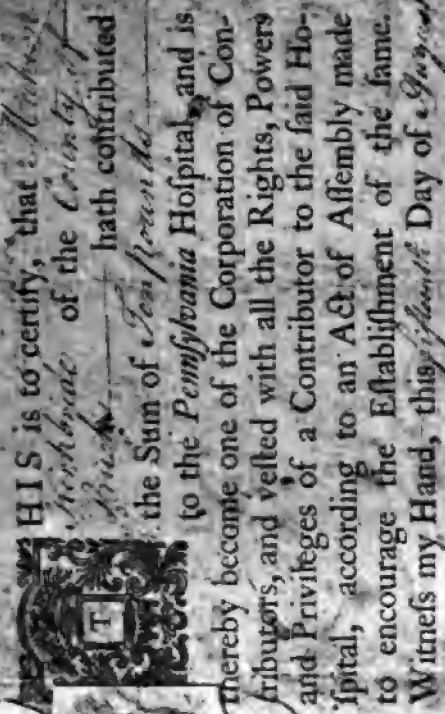 THIS is to certify, that Mahlon
Kirkbride of the County of
Bucks hath contributed
the Sum of Ten Pounds
to the Pennſylvania Hoſpital, and is
thereby become one of the Corporation of Con-
tributors, and veſted with all the Rights, Powers
and Privileges of a Contributor to the ſaid Ho-
ſpital, according to an Act of Aſſembly made
to encourage the Eſtabliſhment of the ſame.
Witneſs my Hand, this fifteenth Day of Auguſt